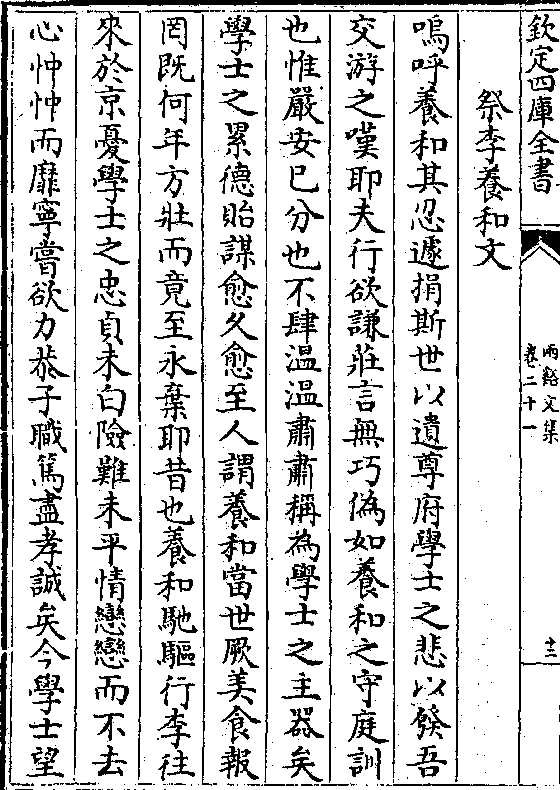 欽定四庫全書
兩谿文集
卷二十一
十三
祭李養和文
嗚呼養和其忍遽捐斯世以遺尊府學士之悲以發吾
交游之嘆耶夫行欲謙莊言無巧偽如養和之守庭訓
也惟嚴安已分也不肆溫溫肅肅稱為學士之主器矣
學士之累德貽謀愈乆愈至人謂養和當世厥美食報
罔既何年方壯而竟至永棄耶昔也養和馳驅行李往
來於京憂學士之忠貞未白險難未平情戀戀而不去
心忡忡而靡寧嘗欲力恭子職篤盡孝誠矣今學士望